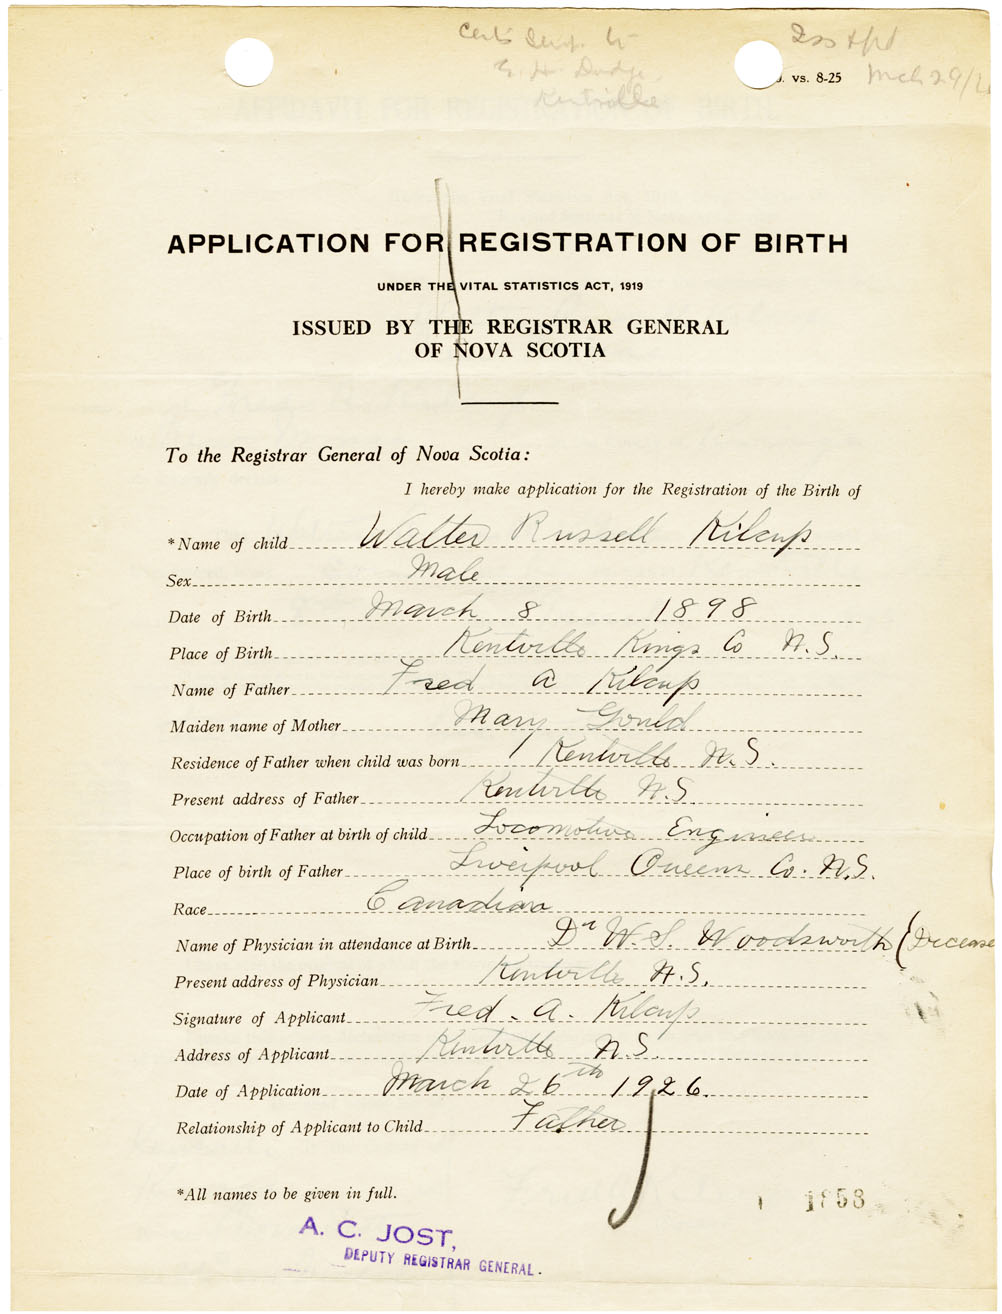 Kentville
vs. 8-25
APPLICATION FOR REGISTRATION OF BIRTH
UNDER THE VITAL STATISTICS ACT, 1919
ISSUED BY THE REGISTRAR GENERAL
OF NOVA SCOTIA
To the Registrar General of Nova Scotia:
I hereby make application for the Registration of the Birth of
*Name of child Walter Russell Kilcup
Sex Male
Date of Birth March 8 1898
Place of Birth Kentville Kings Co N.S.
Name of Father Fred A Kilcup
Maiden name of Mother Mary Gould
Residence of Father when child was born Kentville N.S.
Present address of Father Kentville N.S.
Occupation of Father at birth of child Locomotive Engineer
Place of birth of Father Liverpool Queens Co. N.S.
Race Canadian
Name of Physician in attendance at Birth Dr W. S. Woodsworth (Decease
Present address of Physician Kentville N.S.
Signature of Applicant Fred. A. Kilcup
Address of Applicant Kentville N.S.
Date of Application March 26th 1926.
Relationship of Applicant to Child Father
*All names to be given in full.
1853
A. C. JOST,
DEPUTY REGISTRAR GENERAL.